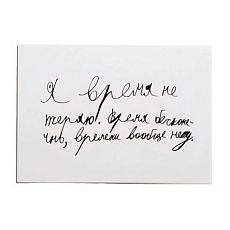 Я время не
теряю. Время бесконе-
чно, времени вообще нет.